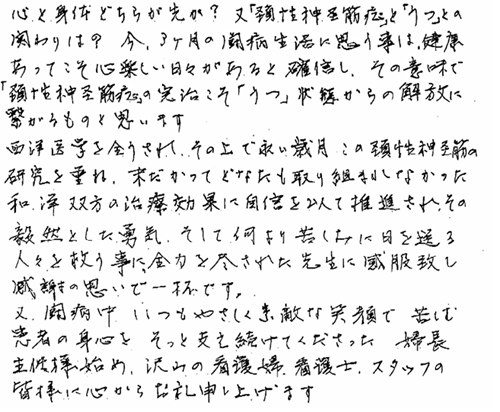 心と身体どちらが先か? 又「頚性神経筋症」と「うつ」との
関わりは? 今、3ヶ月の闘病生活に思う事は、健康
あってこそ心楽しい日々があると確信し、その意味で
「頚性神経筋症」の完治こそ「うつ」状態からの解放に
繋がるものと思います
西洋医学を全うされ、その上で永い歳月この頚性神経筋の
研究を重ね、未だかつてどなたも取り組まれなかった
和、洋 双方の治療効果に自信を以て推進され、その
毅然とした勇気、そして何より苦しみに日を送る
人々を救う事に全力を尽された先生に感服致し
感謝の思いで一杯です。
又、闘病中 いつもやさしく素敵な笑顔で 苦しむ
患者の身心を そっと支え続けてくださった 婦長
主任様始め、沢山の看護婦、看護士、スタッフの
皆様に心からお礼申し上げます